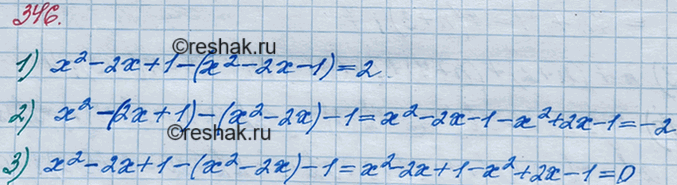 346.
©reshak.ru
1) x² - 2x + 1 - (x² - 2x - 1) = 2
2) x² - (2x + 1) - (x² - 2x) - 1 = x² - 2x - 1 - x² + 2x - 1 = -2
©reshak.ru
3) x² - 2x + 1 - (x² - 2x) - 1 = x² - 2x + 1 - x² + 2x - 1 = 0